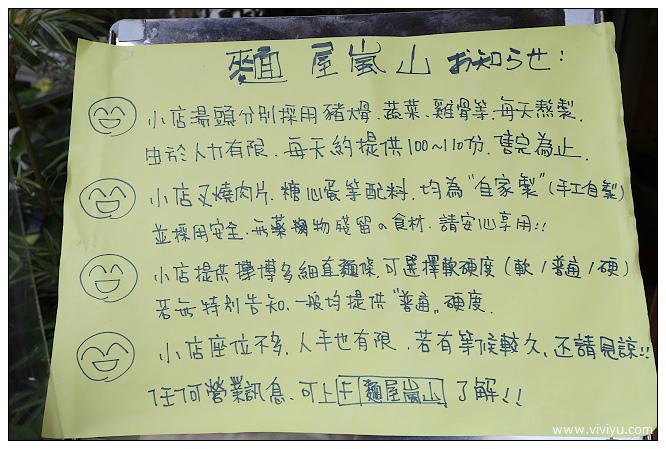 麵屋嵐山 お知らせ:
小店湯頭分別採用豬大骨、蔬菜、雞骨等、每天熬製.
由於人力有限、每天約提供100~110份、售完為止.
小店叉燒肉片、糖心蛋等配料、均為"自家製"(手工自製)
並採用安全、無藥物殘留の食材、請安心享用!!
小店提供博多細直麵條、可選擇軟硬度(軟/普通/硬)
若無特別告知、一般均提供"普通"硬度.
小店座位不多、人手也有限、若有等候較久、还請見諒!!
任何營業訊息、可上F麵屋嵐山了解!!
www.viviyu.com